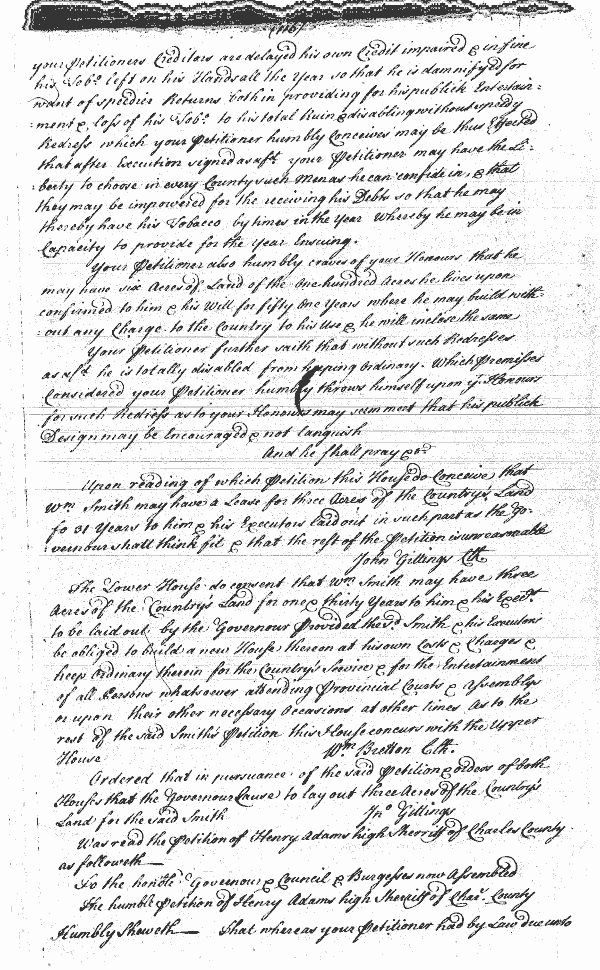 your Petitioners Creditors are delayed his own Credit impaired & in fine
his Tobo. left on his Hands all the Year so that he is damnifyed for
want of speedier Returns both in providing for his publick Entertain=
=ment & loss of his Tobo. to his total Ruin & disabling without speedy
Redress which your Petitioner humbly Conceives may be thus Effected
that after Execution signed as afd. your Petitioner may have the Li=
berty to choose in every County such Men as he can confide in, & that
they may be impowered for the receiving his Debts so that he may
thereby have his Tobacco by times in the Year Whereby he may be in
Capacity to provide for the Year Ensuing.
Your Petitioner also humbly craves of your Honours that he
may have six Acres of Land of the one hundred Acres he lives upon
confirmed to him & his Will for fifty one Years where he may build with=
=out any Charge to the Country to his Use & he will inclose the same
Your Petitioner further saith that without such Redresses
as afd. he is totally disabled from keeping Ordinary. Which Premisses
Considered your Petitioner humbly throws himself upon yr. Honours
for such Redress as to your Honours may seem meet that his publick
Design may be Encouraged & not languish
And he shall pray &ca.
Upon reading of which Petition this House do Conceive that
Wm. Smith may have a Lease for three Acres of the Country's Land
fo 31 Years to him & his Executors laid out in such part as the Go=
=vernour shall think fit & that the rest of the Petition is unreasonable
John Gillings Clk.
The Lower House do consent that Wm. Smith may have three
Acres of the Country's Land for one & thirty Years to him & his Execrs.
to be laid out by the Governour Provided the sd. Smith & his Executors
be obliged to build a new House thereon at his own Costs & Charges &
keep Ordinary therein for the Country's Service & for the Entertainment
of all Persons whatsoever attending Provincial Courts & Assemblys
or upon their other necessary Occasions at other times As to the
rest of the said Smith's Petition this House concurs with the Upper
House Wm. Bretton Clk.
Ordered that in pursuance of the said Petition & orders of both
Houses that the Governour Cause to lay out three Acres of the Country's
Land for the said Smith Jno. Gillings
Was read the Petition of Henry Adams high Sherriff of Charles County
as followeth—
To the honble. Governour & Council & Burgesses now Assembled
The humble Petition of Henry Adams high Sherriff of Char. County
Humbly Sheweth— That whereas your Petitioner had by Law due unto